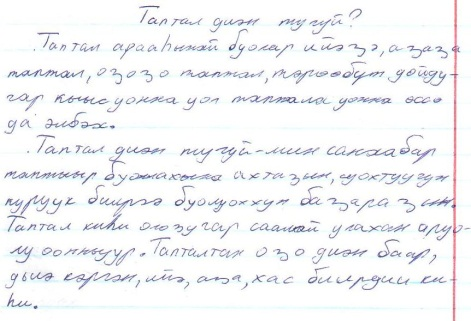 Таптал диэн тугуй?
Таптал арааһынай буолар ийэҕэ, аҕаҕа
таптал, оҕоҕо таптал, төрөөбүт дойду-
гар кыыс уонна уол таптала уонна өссө
да элбэх.
Таптал диэн тугуй-мин санаабар
таптыыр буоллахына ахтаҕын, суохтуугун
куруук бииргэ буолуоххун баҕараҕын.
Таптал киһи олоҕугар саамай улахан аруо-
лу оонньуур. Тапталтан оҕо диэн баар,
дьиэ кэргэн, ийэ, аҕа, хас биирдии ки-
һи.